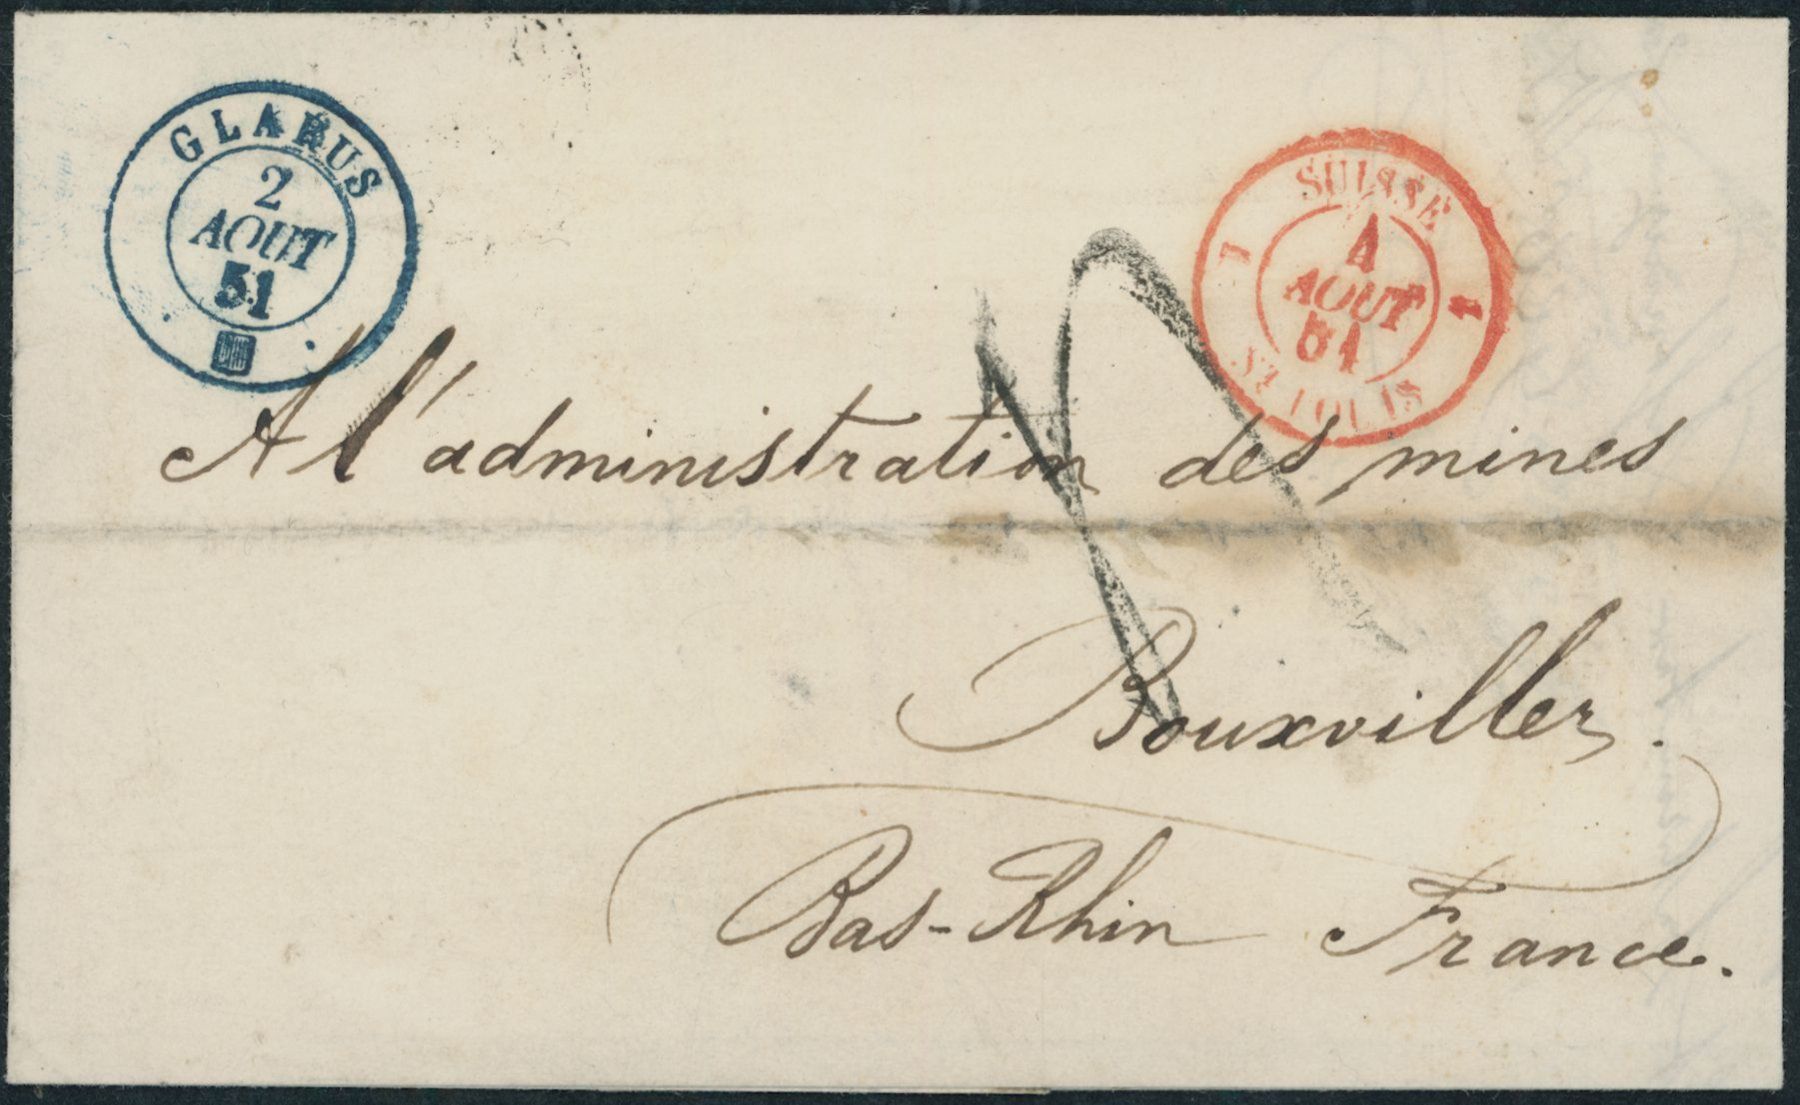 GLARUS
2
AOUT
51
SUISSE
4
AOUT
51
1 1
ST LOUIS
A l'administration des mines
Bouxviller.
Bas-Rhin France.